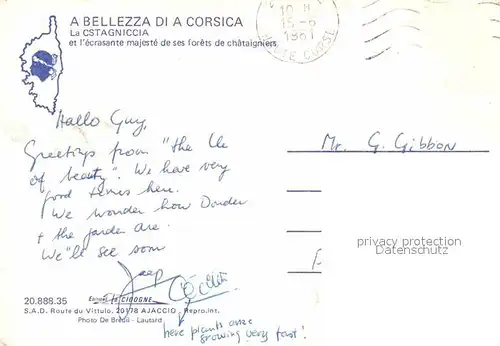 A BELLEZZA DI A CORSICA
La CSTAGNICCIA
et l'écrasante majesté de ses forêts de châtaigniers
15-6
1981
HAUTE CORSE
Hallo Guy,
Greetings from "the Ile
of beauty". We have very
good times here.
We wonder how
+ the garden are.
We'll see soon
Mr. G. Gibbon
privacy protection
Jaap
Cécile
20.888.35
CIGOGNE
S.A.D. Route du Vittulo, 20178 AJACCIO - Repro.int.
Photo De Breuil - Lautard
here plants are
growing very fast!